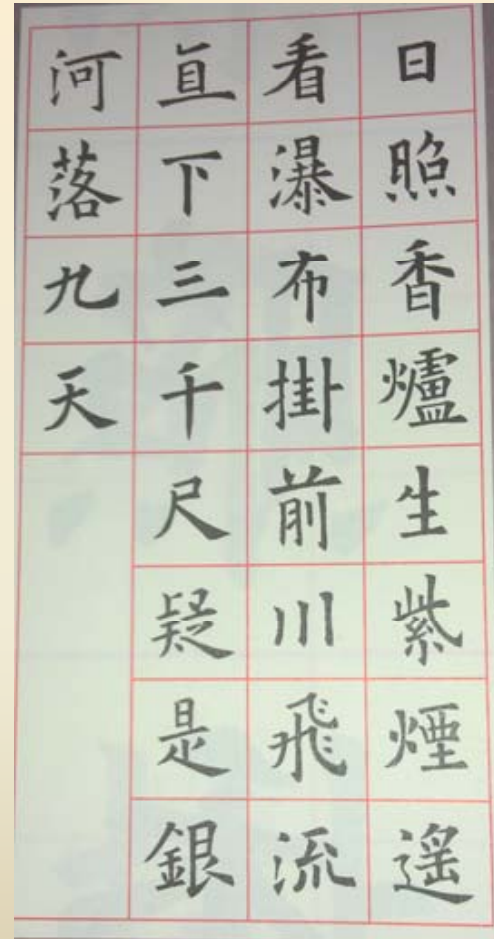 日照香爐生紫煙遙
看瀑布掛前川飛流
直下三千尺疑是銀
河落九天